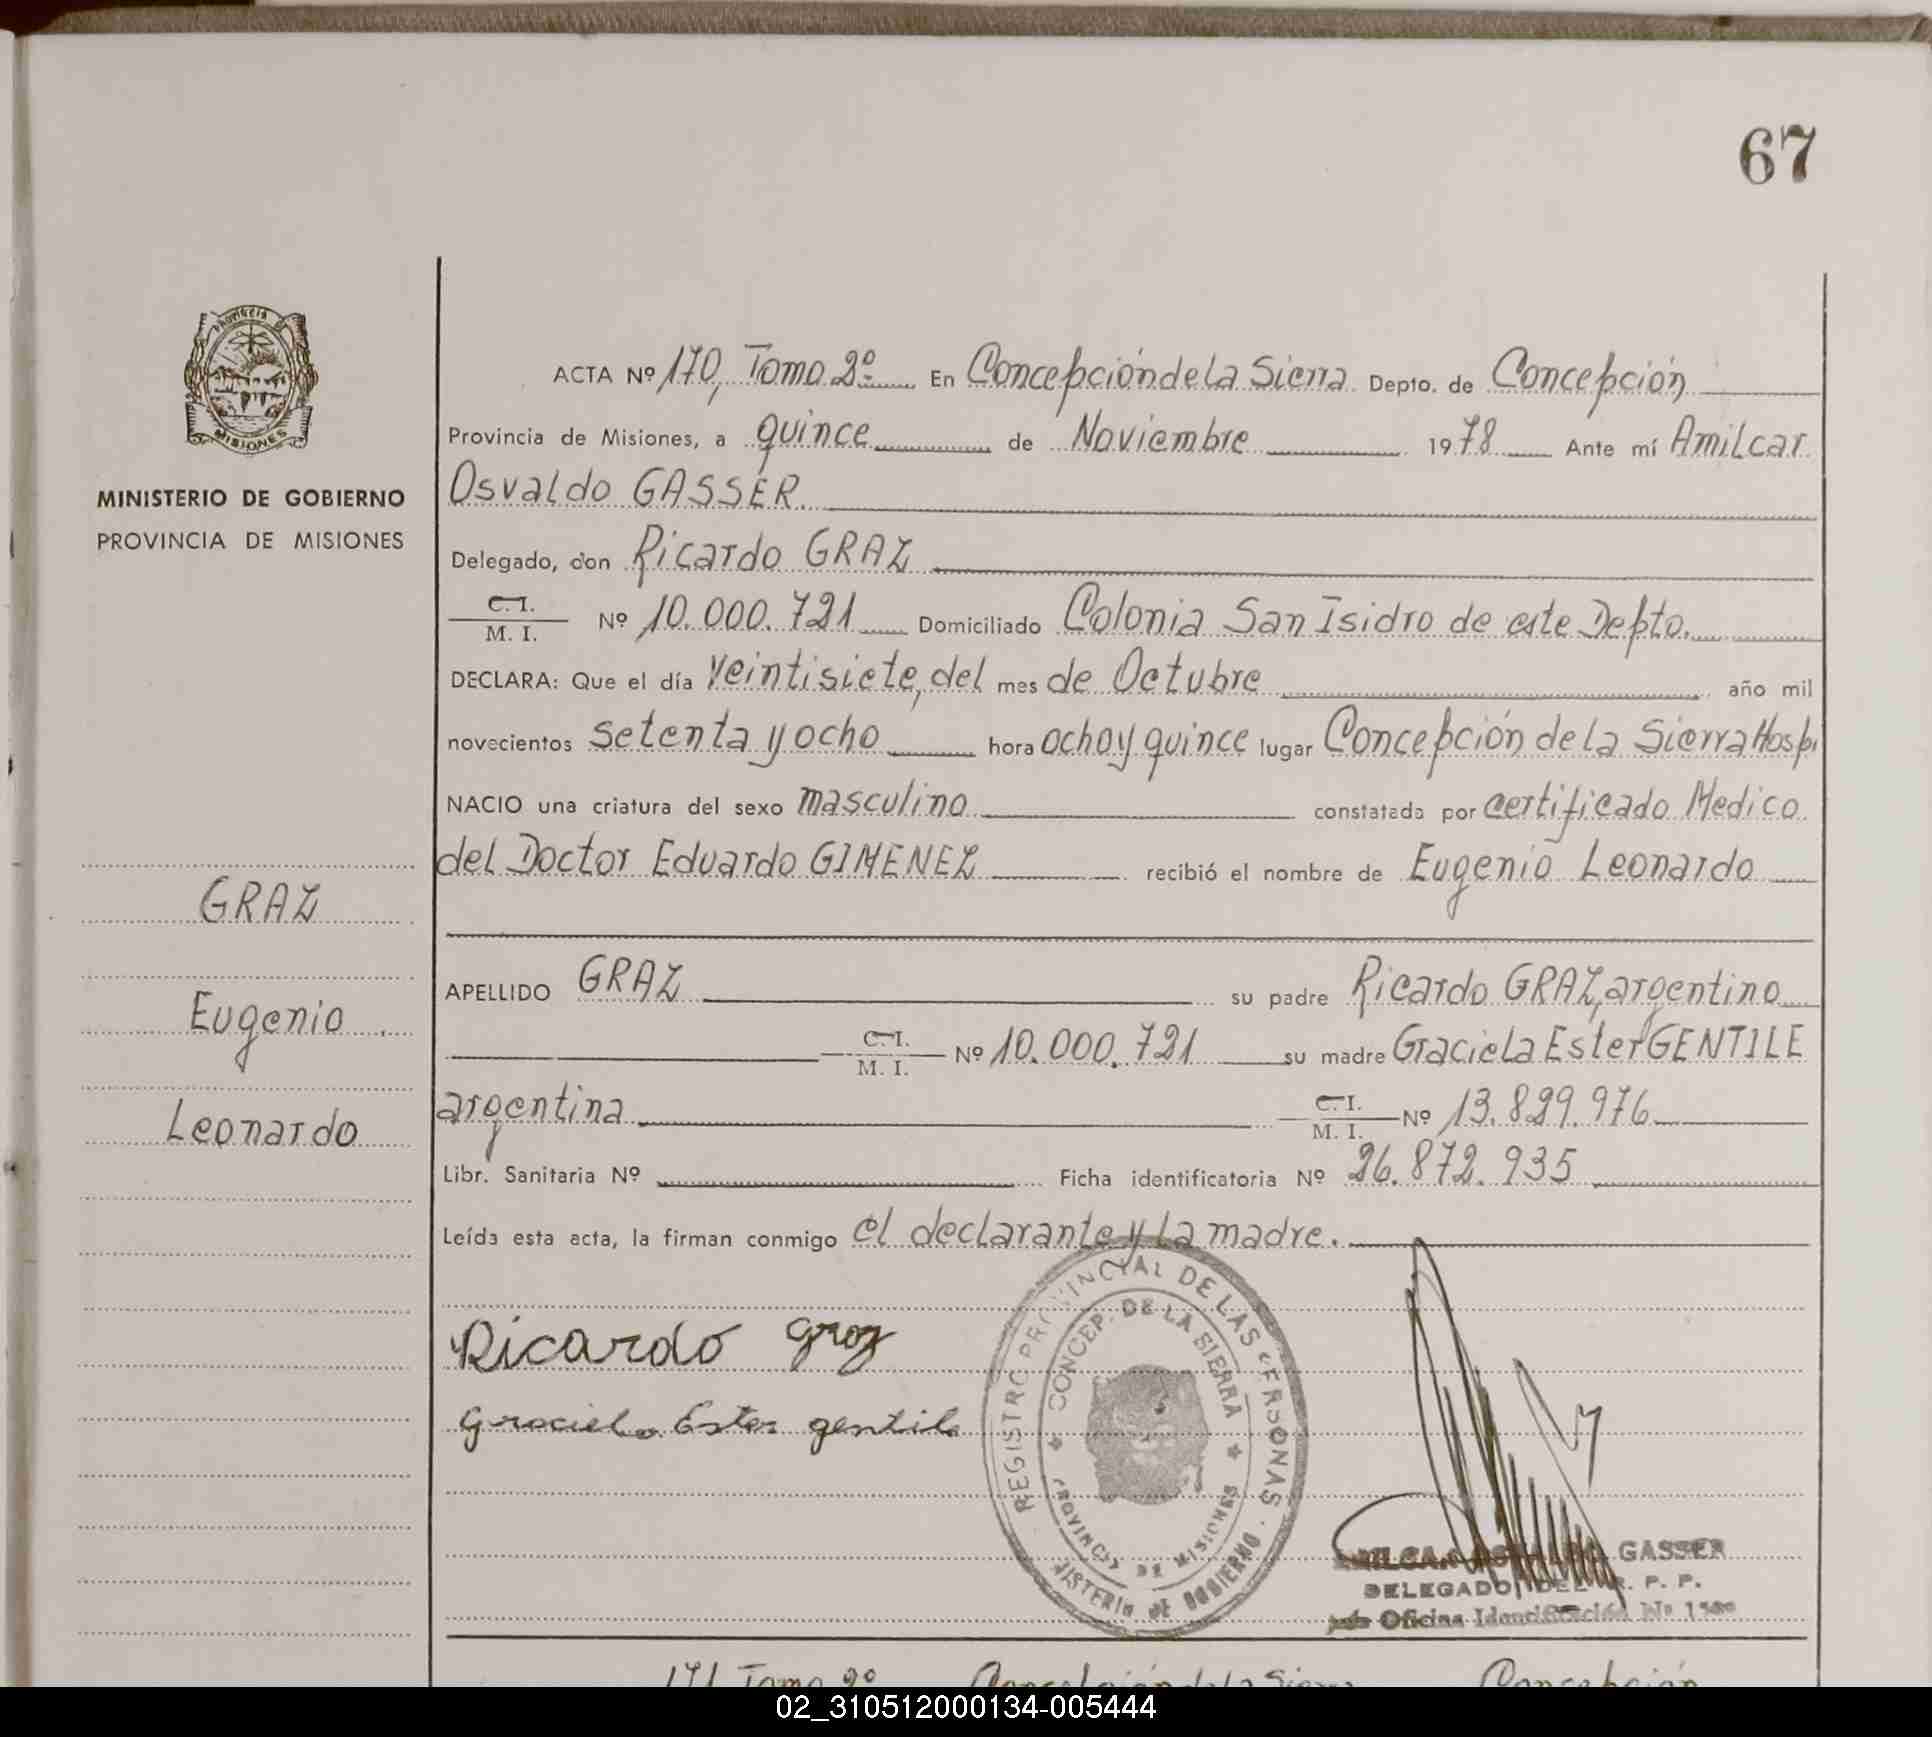 67
PROVINCIA DE
MISIONES
MINISTERIO DE GOBIERNO
PROVINCIA DE MISIONES
GRAZ
Eugenio
Leonardo
ACTA Nº 170, Tomo 2º En Concepción de la Sierra Depto. de Concepción
Provincia de Misiones, a quince de Noviembre 1978 Ante mí Amilcar
Osvaldo GASSER.
Delegado, don Ricardo GRAZ
C.I.
M. I. Nº 10.000.721 Domiciliado Colonia San Isidro de este Depto.
DECLARA: Que el día veintisiete, del mes de Octubre año mil
novecientos setenta y ocho hora ocho y quince lugar Concepción de la Sierra Hospi
NACIO una criatura del sexo masculino constatada por certificado Medico
del Doctor Eduardo GIMENEZ recibió el nombre de Eugenio Leonardo
APELLIDO GRAZ su padre Ricardo GRAZ, argentino
C.I.
M. I. Nº 10.000.721 su madre Graciela Ester GENTILE
argentina C.I.
M. I. Nº 13.829.976
Libr. Sanitaria Nº Ficha identificatoria Nº 26.872.935
Leída esta acta, la firman conmigo el declarante y la madre.
Ricardo Graz
Graciela Ester gentile
REGISTRO PROVINCIAL DE LAS PERSONAS
CONCEP. DE LA SIERRA
PROVINCIA DE MISIONES
MINISTERIO DE GOBIERNO
GASSER
DELEGADO DEL R. P. P.
Jefe Oficina Identificación Nº
171 Tomo 2º Concepción de la Sierra Concepción
02_310512000134-005444